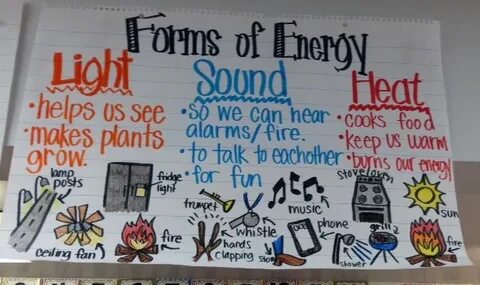 Forms of Energy
Light
• helps us see
• makes plants
grow.
Sound
• so we can hear
alarms/fire.
• to talk to eachother
• for fun
Heat
• cooks food
• keep us warm
• burns our energy
lamp
posts
fridge
light
ceiling fan
fire
trumpet
whistle
hands
clapping
music
phone
shower
stove/oven
grill
sun
fire